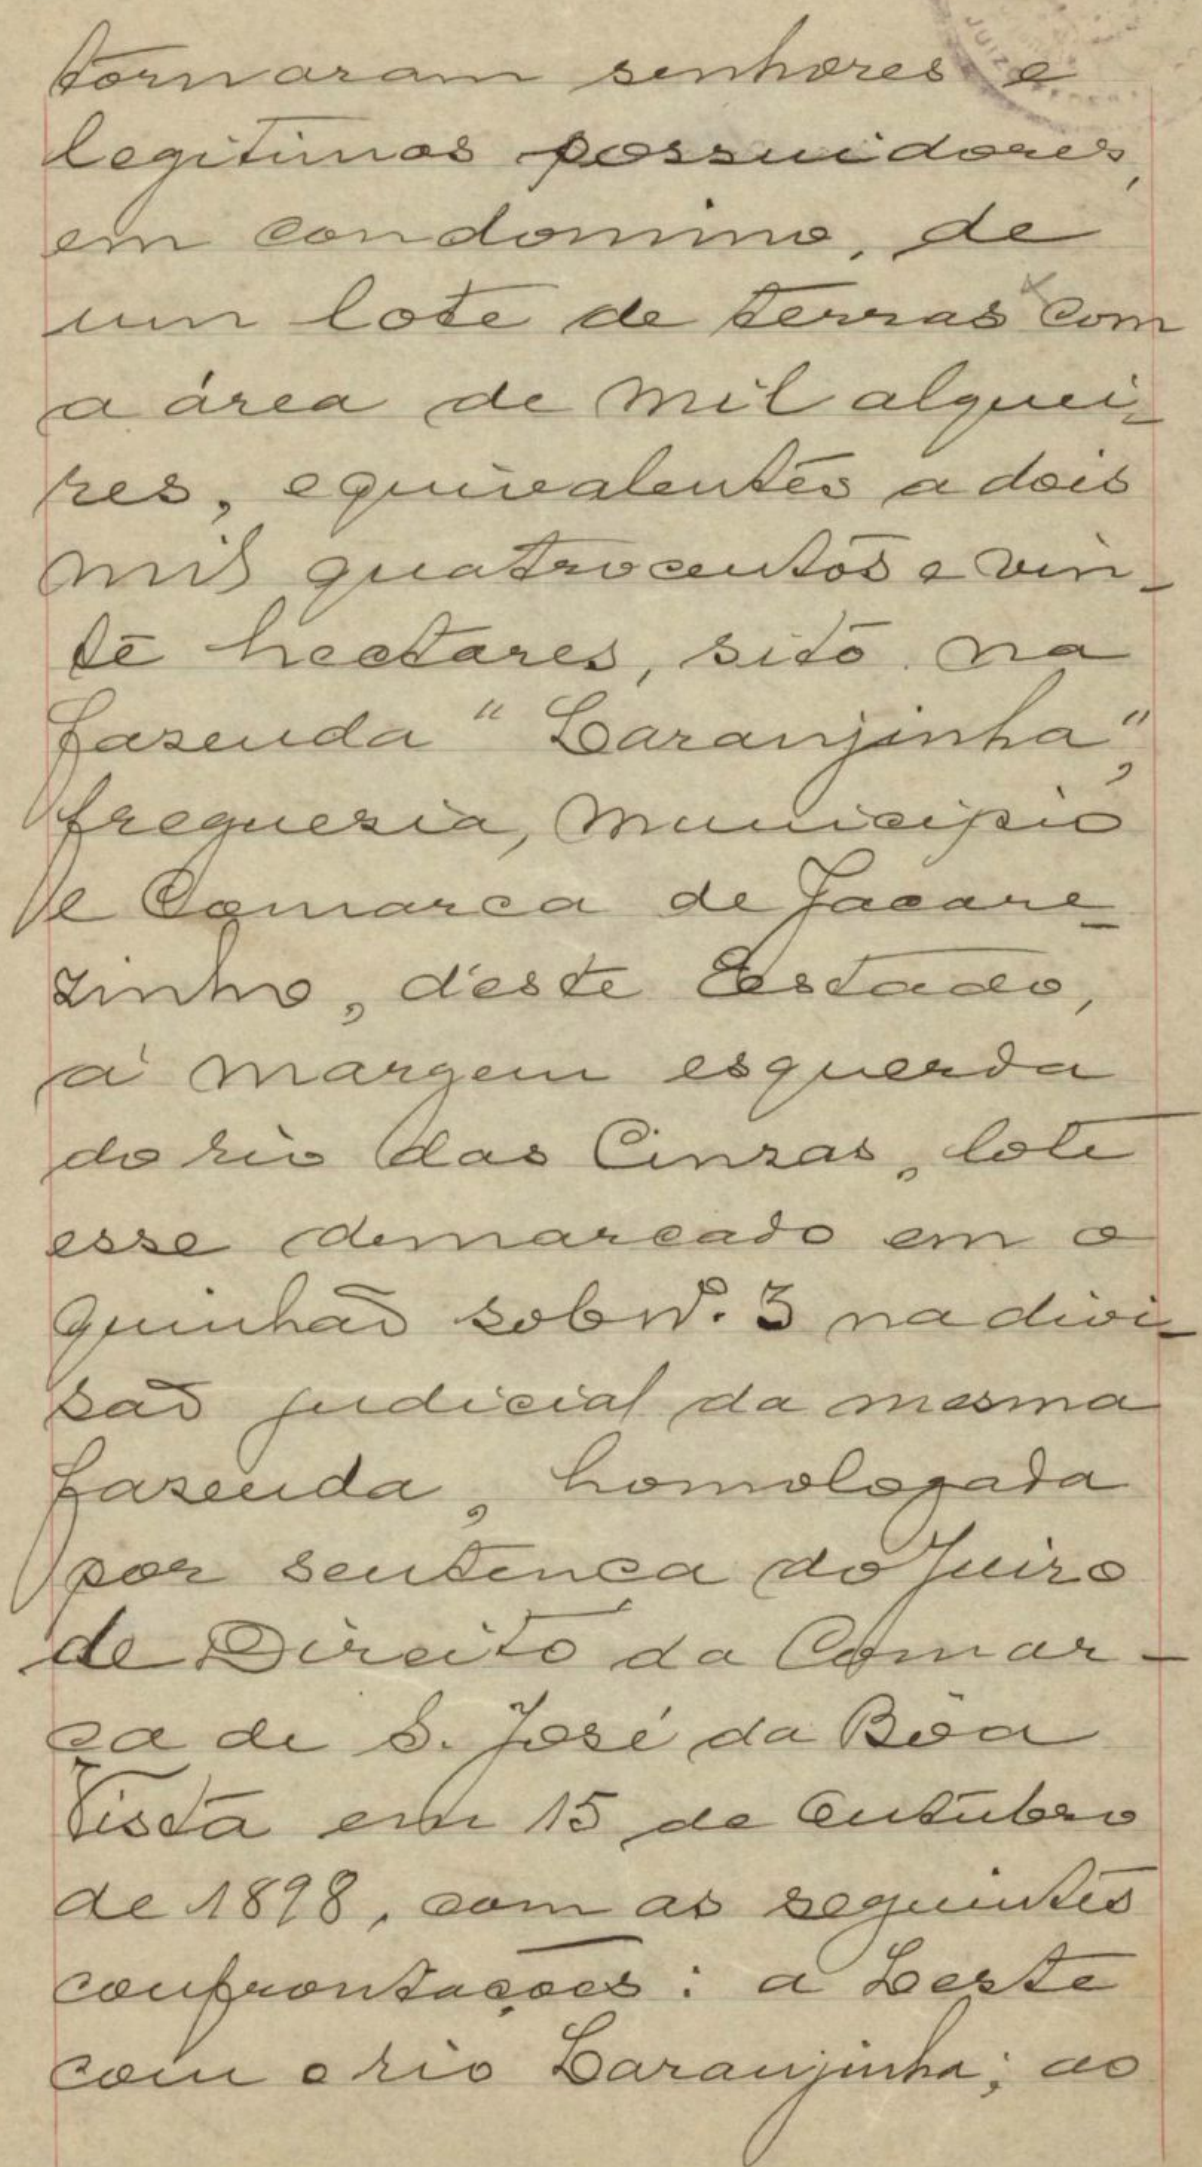 JUIZO
tornaram senhores e
legitimos possuidores,
em condominio, de
um lote de terras com
a área de mil alquei-
res, equivalentes a dois
mil quatrocentos e vin-
te hectares, sito na
fazenda "Laranjinha",
freguezia, municipio
e Comarca de Jacare-
zinho, d'este Estado,
á margem esquerda
do rio das Cinzas, lote
esse demarcado em o
quinhão sob Nº. 3 na divi-
são judicial da mesma
fazenda, homologada
por sentença do Juizo
de Direito da Comar-
ca de S. José da Bôa
Vista em 15 de Outubro
de 1898, com as seguintes
confrontações: a Leste
com o rio Laranjinha; ao